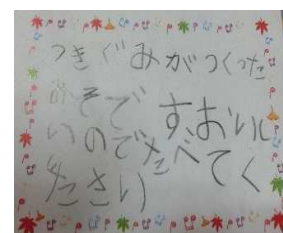 つきぐみがつくった
みそです、おいし
いのでたべてく
ださい